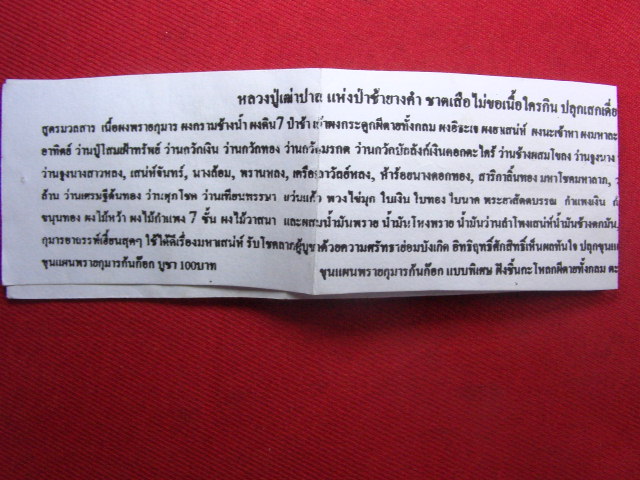 หลวงปู่เฒ่าปาล แห่งป่าช้ายางคำ ชาตเสือไม่ขอเนื้อใครกิน ปลุกเสกเดี่ย
สูตรมวลสาร เนื้อผงพรายกุมาร ผงกรามช้างน้ำ ผงดิน7 ป่าช้า ผงกระดูกผีตายทั้งกลม ผงอิธะเจ ผงยาเสน่ห์ ผงนะเข้าหา ผงมหาละ
อาทิตย์ ว่านปู่โสมเฝ้าทรัพย์ ว่านกวักเงิน ว่านกวักทอง ว่านกวักมรกต ว่านกวักบัลลังก์เงินดอกตะไคร้ ว่านช้างผสมโขลง ว่านจูงนาง
ว่านจูงนางสาวหลง, เสน่ห์จันทร์, นางล้อม, พรานหลง, เครือสาวัลย์หลง, ห้าร้อยนางดอกทอง, สาริกาลิ้นทอง มหาโชคมหาลาภ,
ล้าน ว่านเศรษฐีต้นทอง ว่านศุกโชค ว่านเทียนพรรษา แว่นแก้ว พวงไข่มุก ใบเงิน ใบทอง ใบนาค พระยาสัตตบรรณ กำแพงเงิน
ขนุนทอง ผงไม้หว้า ผงไม้กำแพง 7 ชั้น ผงไม้วาสนา และผสมน้ำมันพราย น้ำมันโหงพราย น้ำมันว่านลำโพงเสน่ห์น้ำมันช้างตกมัน,
กุมารอาถรรพ์เฮี้ยนสุดๆ ใช้ได้ดีเรื่องมหาเสน่ห์ รับโชคลาภผู้บูชาด้วยความศรัทธาย่อมบังเกิด อิทธิฤทธิ์ศักสิทธิ์เห็นผลทันใจ ปลุกขุนแ
ขุนแผนพรายกุมารก้นก๊อก บูชา 100บาท ขุนแผนพรายกุมารก้นก๊อก แบบพิเศษ ฝังชิ้นกะโหลกผีตายทั้งกลม ตะ